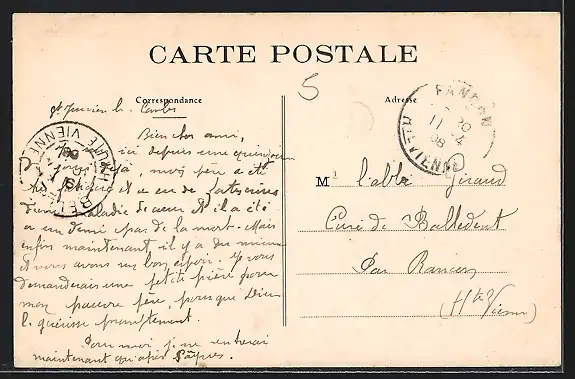 CARTE POSTALE
Correspondance
Adresse
5
St Junien les Combes
Bien cher ami,
ici depuis une quinzaine
mon père a été
et a eu de
maladie de cœur et il a été
a un demi pas de la mort. Mais
enfin maintenant, il y a du mieux
et nous avons un bon espoir. Je vous
demanderais une petite prière pour
mon pauvre père, pour que Dieu
le guérisse promptement.
Pour moi je ne rentrerai
maintenant qu'après Pâques.
HAUTE VIENNE
BEL
11 -4
08
M l'abbé Giraud
Curé de Balledent
Par Rancon
(Hte Vienne)